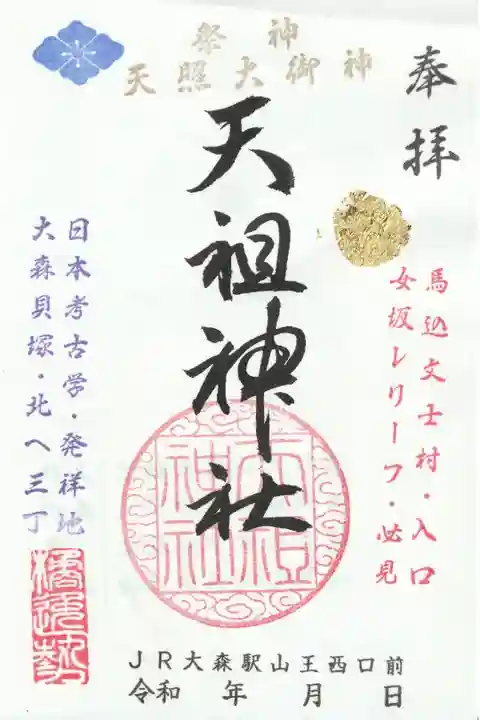 奉拝
祭神
天照大御神
天祖神社
馬込文士村・入口
女坂レリーフ・必見
日本考古学・発祥地
大森貝塚・北へ三丁
天祖
神社
JR大森駅山王西口前
令和　年　月　日